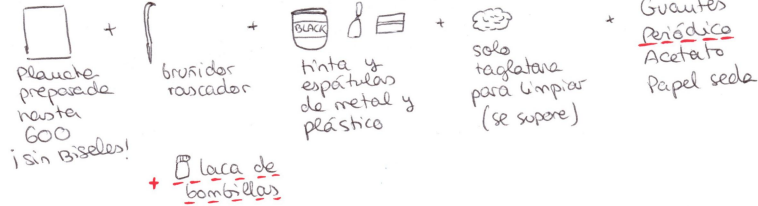 Plancha
preparada
hasta
600
¡sin Biseles!
bruñidor
rascador
BLACK
tinta y
espátulas
de metal y
plástico
solo
taglatana
para limpiar
(se supone)
Guantes
Periódico
Acetato
Papel seda
laca de
bombillas